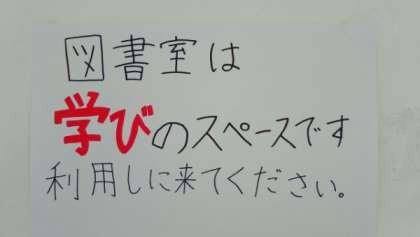 図書室は
学びのスペースです
利用しに来てください。